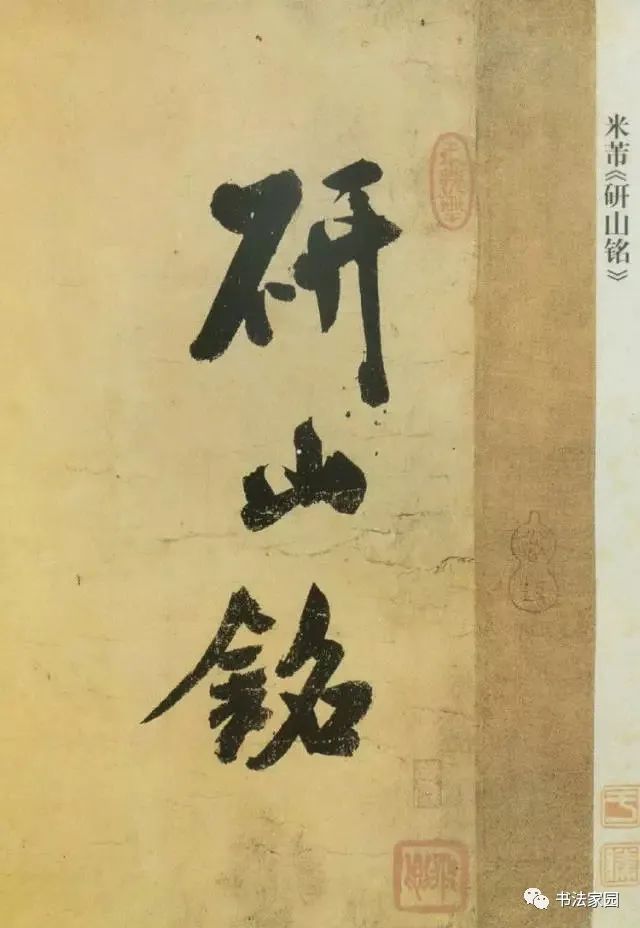 米芾《研山铭》
研山銘
书法家园